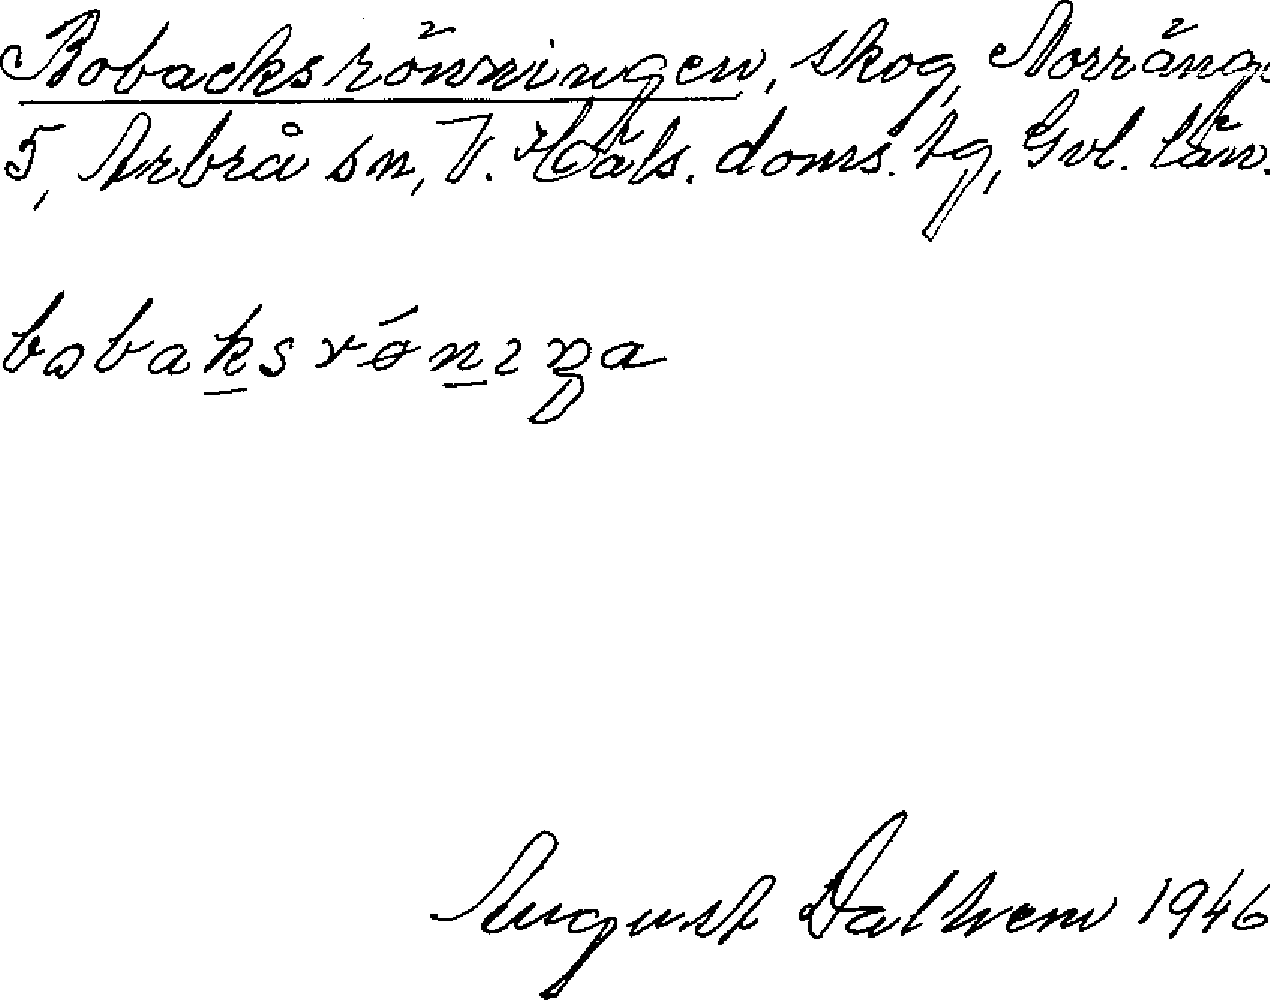 Bobacksrönningen, skog, Norränge
5, Arbrå sn, V. Häls. doms. tg, Gvl. län.
bobaksrǿnıŋa
August Dalhem 1946